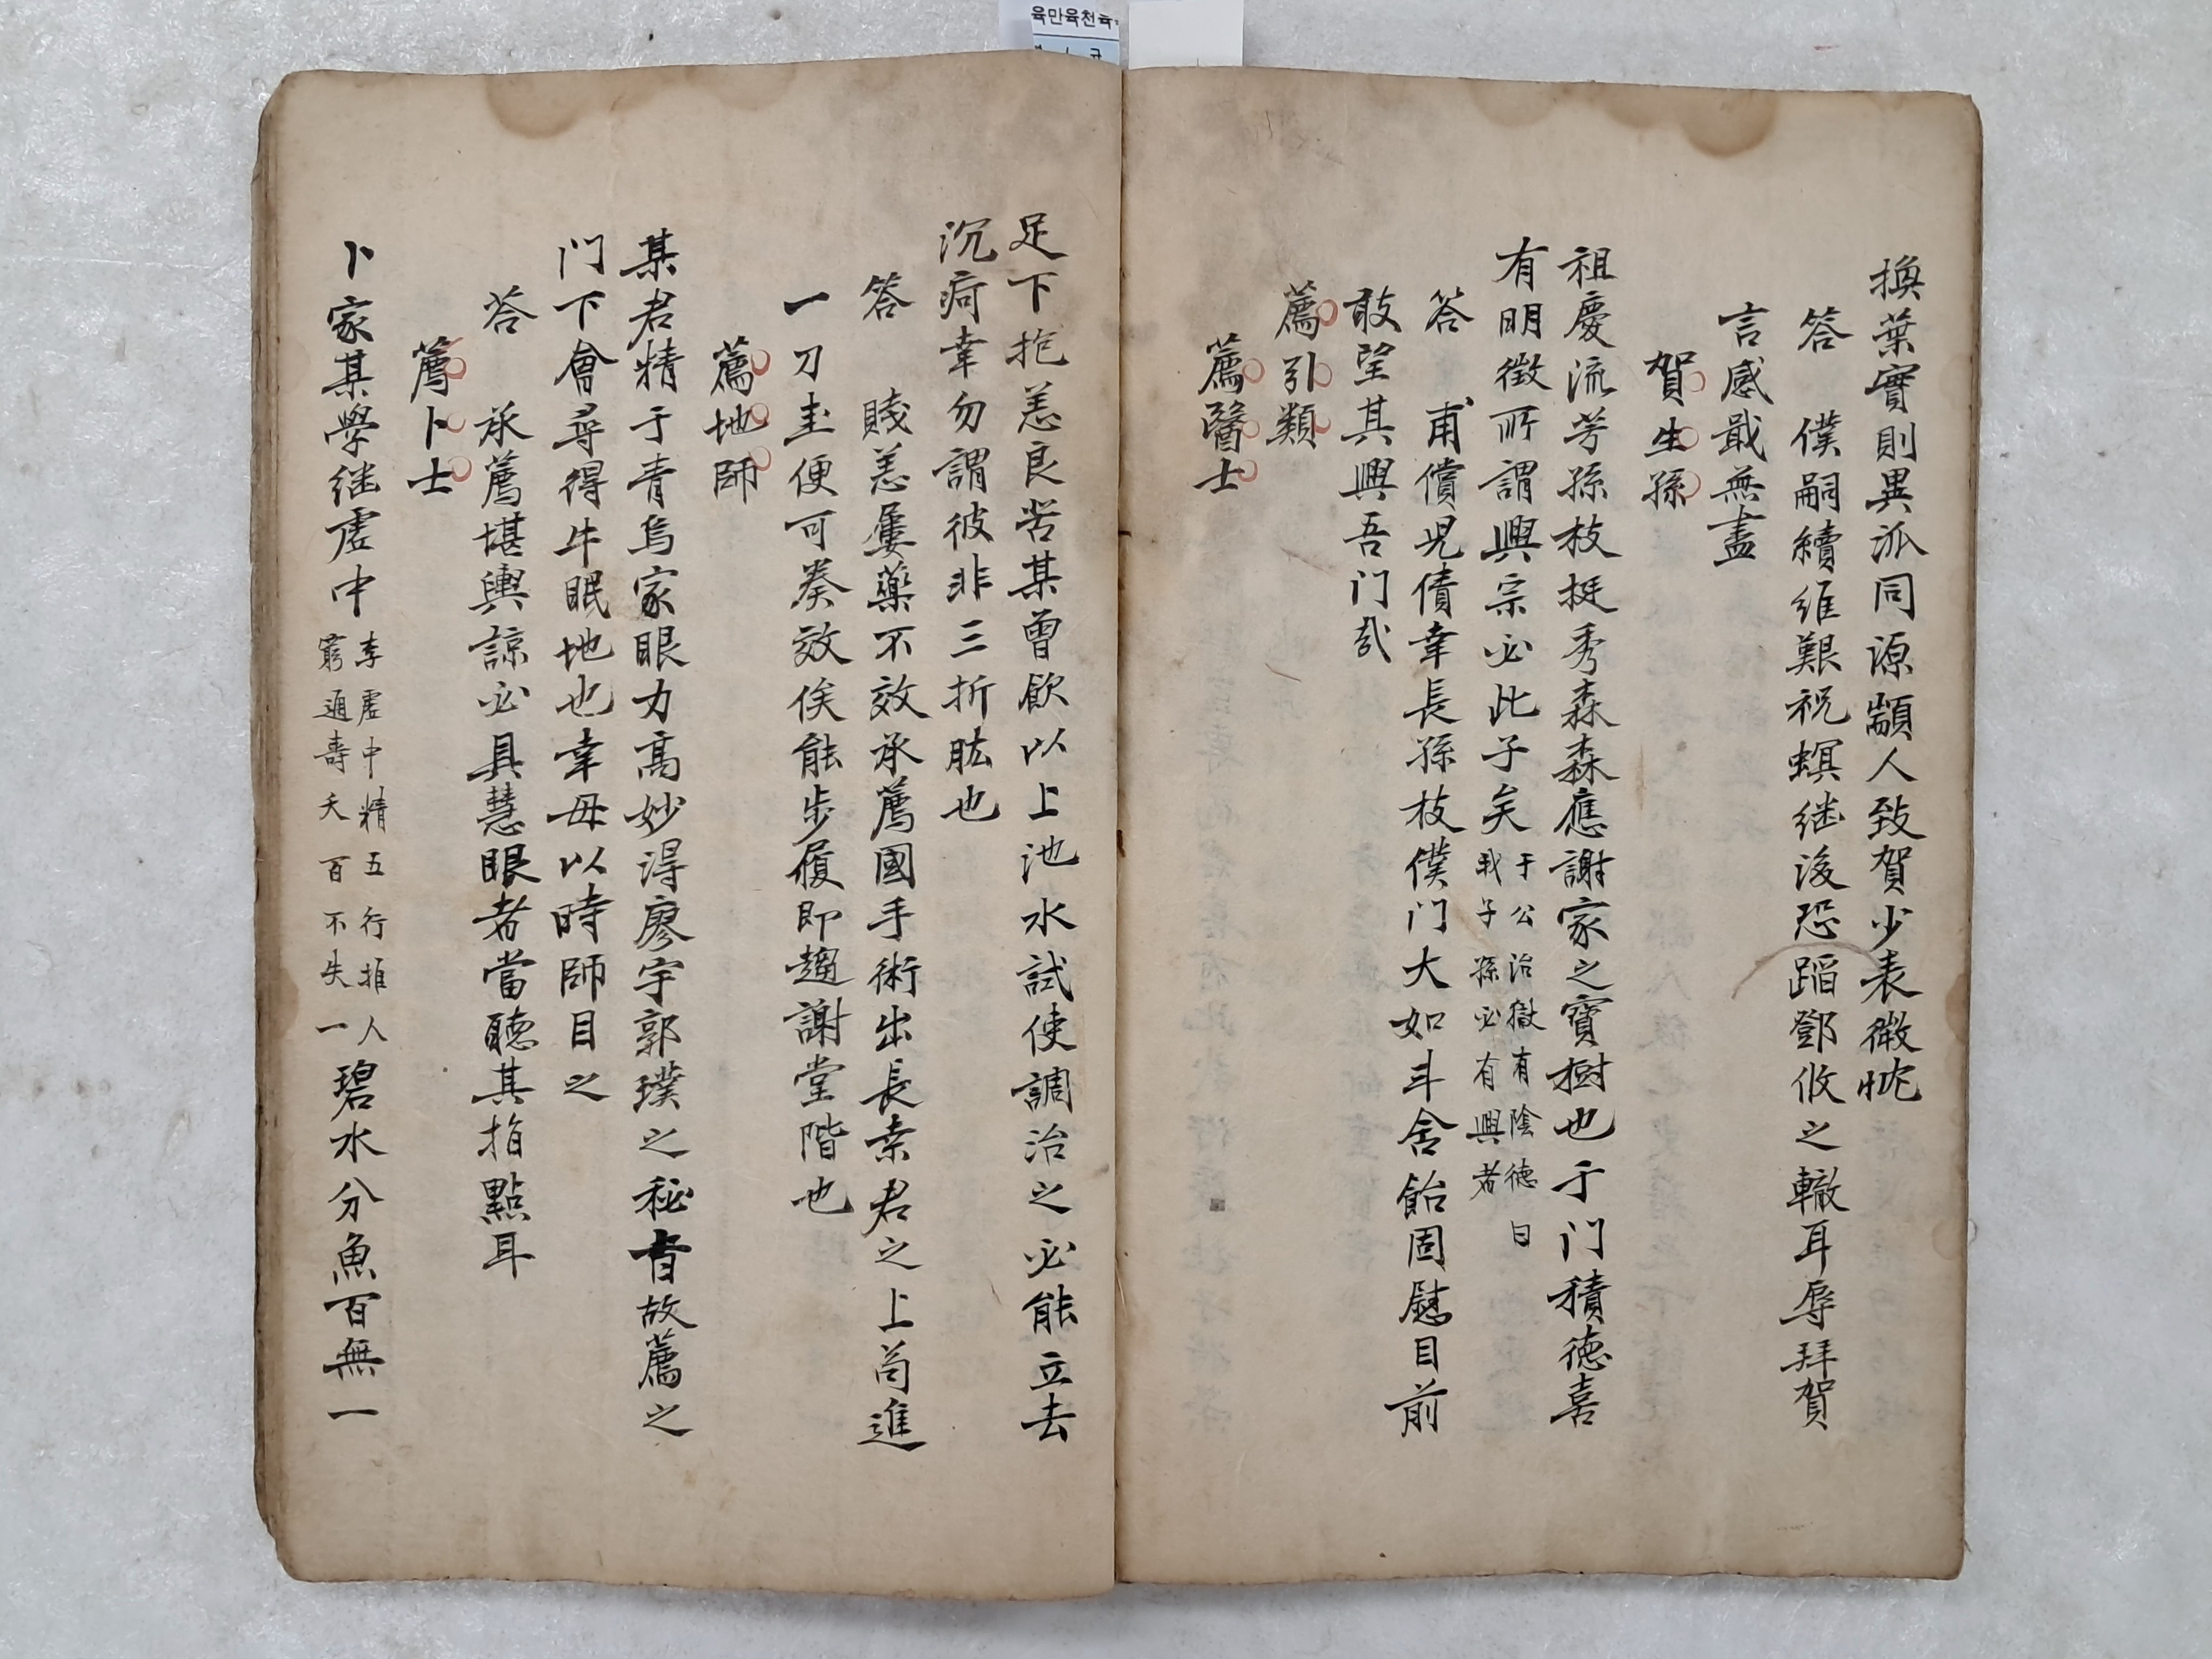 육만육천육
換葉實則異派同源顓人致賀少表微忱
答　僕嗣續維艱祝螟继後恐蹈鄧攸之轍耳辱拜賀
言感戢無盡
賀生孫
祖慶流芳孫枝挺秀森森應謝家之寶樹也于门積德喜
有明徵所謂興宗必此子矣
于公治獄有陰德曰
我子孫必有興者
答　甫償児債幸長孫枝僕门大如斗舍飴固慰目前
敢望其興吾门哉
薦引類
薦醫士
足下抱恙良苦某曾飲以上池水試使調治之必能立去
沉疴幸勿謂彼非三折肱也
答　賤恙屢藥不效承薦國手術出長桒君之上苟進
一刀圭便可奏效俟能步履即趨謝堂階也
薦地師
某君精于青烏家眼力高妙淂廖宇郭璞之秘旨故薦之
门下會尋得牛眠地也幸毋以時師目之
答　承薦堪輿諒必具慧眼者當聽其指點耳
薦卜士
卜家某學继虚中
李虚中精五行推人
窮通壽夭百不失一
碧水分魚百無一